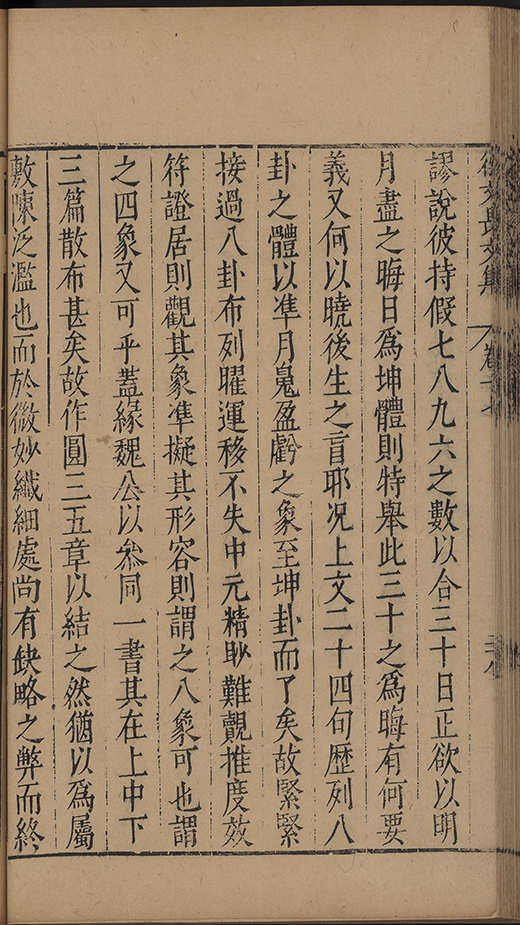 徐文長文集　卷十七
謬說彼持假七八九六之數以合三十日正欲以明
月盡之晦日爲坤體則特舉此三十之爲晦有何要
義又何以曉後生之盲耶况上文二十四句歷列八
卦之體以準月䰟盈虧之象至坤卦而了矣故緊緊
接過八卦布列曜運移不失中元精眇難覩推度效
符證居則觀其象準擬其形容則謂之八象可也謂
之四象又可乎蓋緣魏公以叅同一書其在上中下
三篇散布甚矣故作圓三五章以結之然猶以爲屬
敷陳泛濫也而於微妙纖細處尚有缺略之弊而終